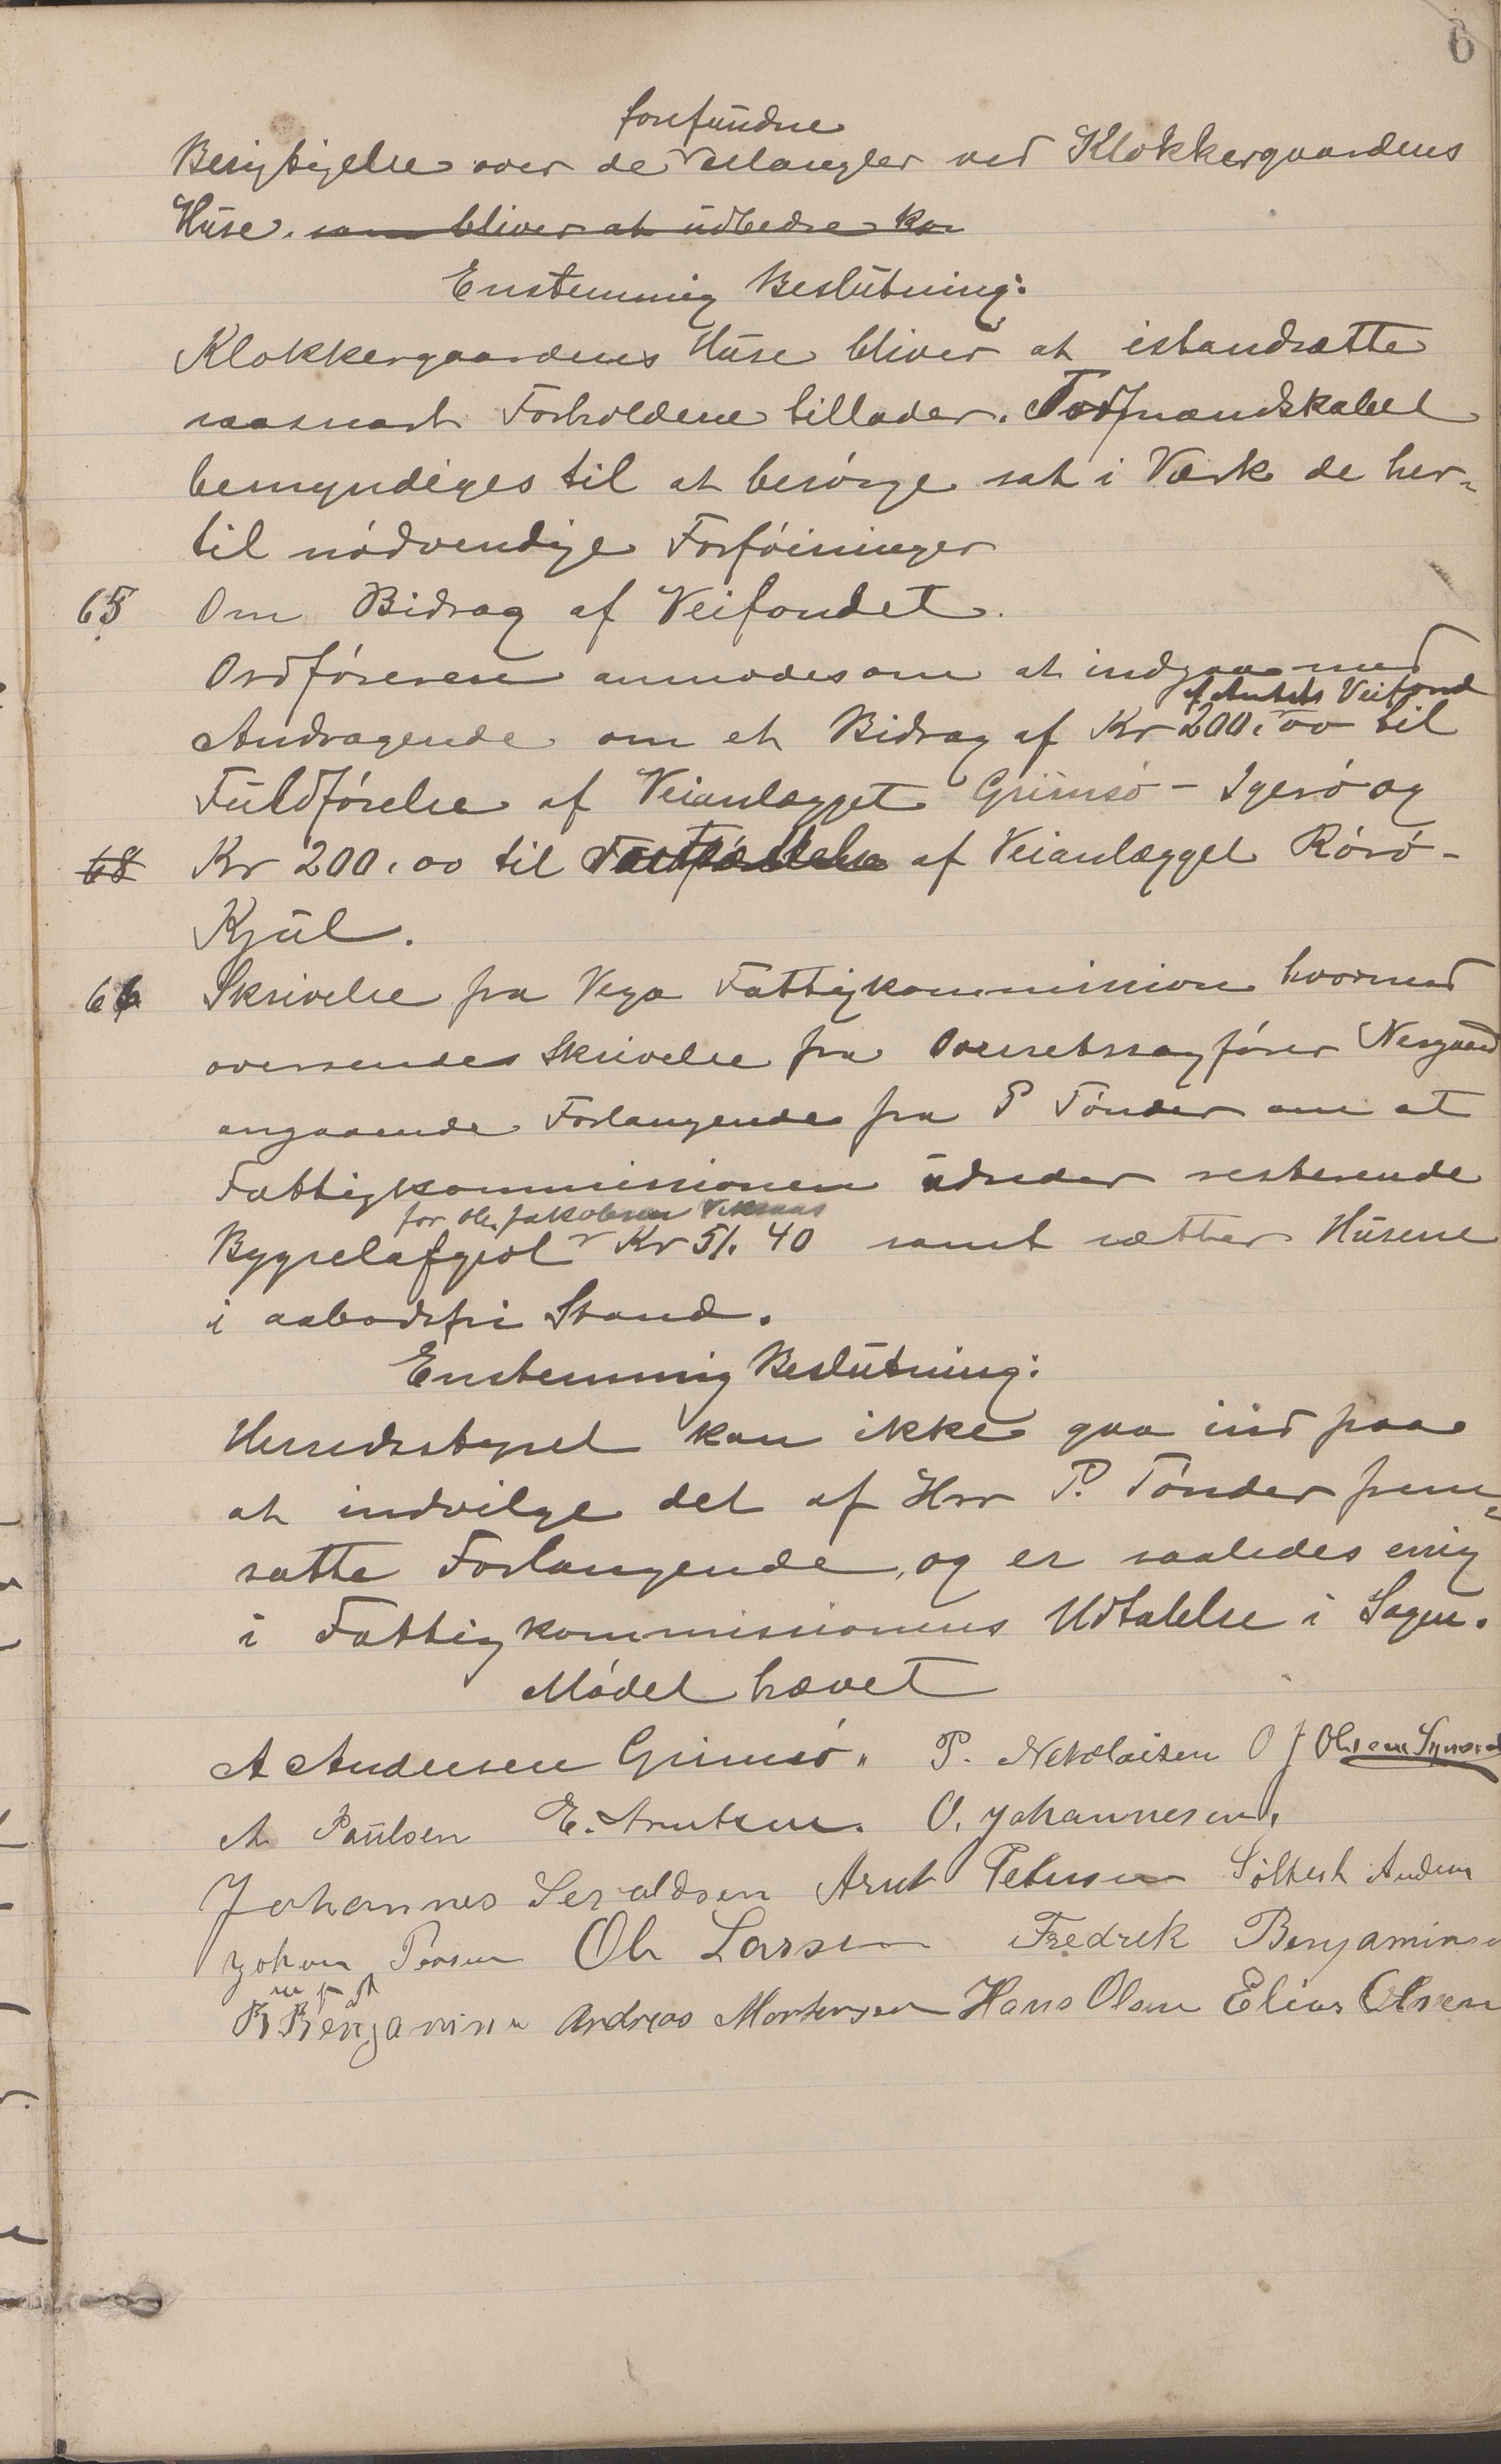 6
forefundne
Besigtigelse over de Mangler ved Klokkergaardens
Huse. som bliver at udbedre
Enstemmig Beslutning:
Klokkergaardens Huse bliver at istandsætte
saasnart Forholdene tillader. Formandskabet
bemyndiges til at besørge sat i Værk de her-
til nødvendige Forføininger
65 Om Bidrag af Veifondet.
Ordføreren anmodes om at indgaa med
af Amtets Veifond
Andragende om et Bidrag af Kr 200.00 til
Fuldførelse af Veianlægget Grimsø - Igerø og
68 Kr 200.00 til af Veianlægget Rørø-
Kjul.
66 Skrivelse fra Vega Fattigkommission hvormed
oversendes Skrivelse fra Overretssagfører Nergaard
angaaende Forlangende fra P Tønder om at
Fattigkommissionen udreder resterende
for Ole Jakobsen
Bygselafgivt Kr 51.40 samt sætter Husene
i aabodsfri Stand.
Enstemmig Beslutning:
Herredsstyret kan ikke gaa ind paa
at indvilge det af Hrr P. Tønder frem-
satte Forlangende, og er saaledes enig
i Fattigkommissionens Udtalelse i Sagen.
Mødet hævet
A Andersen Grimsø. P. Nekolaisen O J Olsen
A Paulsen E. Arntsen. O. Johannesen.
Johannes Seraldsen Arnt Petersen Sølfest Andersen
Johan Ole Larsen Fredrek Benjaminsen
m f P
B Benjaminsen Andreas Mortensen Hans Olsen Elias Olsen